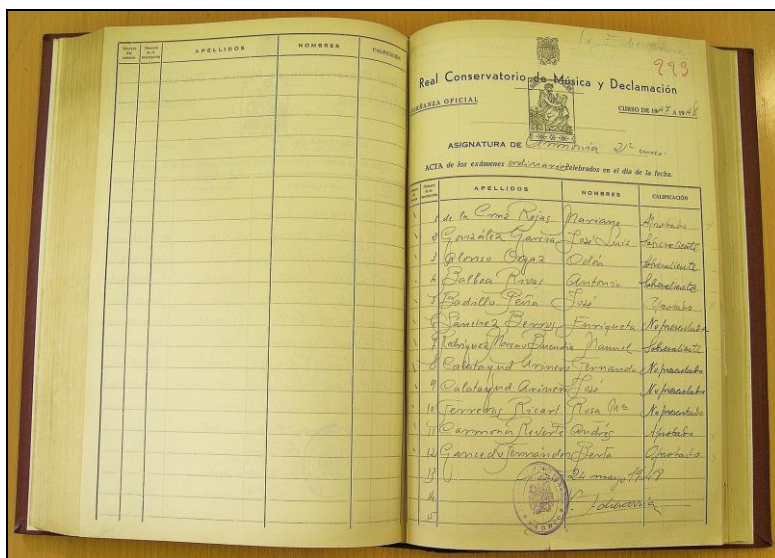 APELLIDOS NOMBRES CALIFICACIÓN
999
Real Conservatorio de Música y Declamación
ENSEÑANZA OFICIAL
CURSO DE 1947 A 1948
ASIGNATURA DE Armonía 2º curso.
ACTA de los exámenes ordinarios celebrados en el día de la fecha.
APELLIDOS NOMBRES CALIFICACIÓN
1 de la Cruz Rojas Mariano Aprobado
2 González García José Luis Sobresaliente
3 Alonso Orgaz Odón Sobresaliente
4 Balboa Rivas Antonio Sobresaliente
5 Badillo Peña José Aprobado
6 Sánchez Enriqueta No presentada
7 Rodríguez Moreno Buendía Manuel Sobresaliente
8 Calatayud Fernando No presentado
9 Calatayud José No presentado
10 Ferreras Ricart Rosa Mª No presentado
11 Carmona Reverte Andrés Aprobado
12 Gancedo Fernández Berta Aprobado
13 24 mayo 1948
14 Echevarría
15